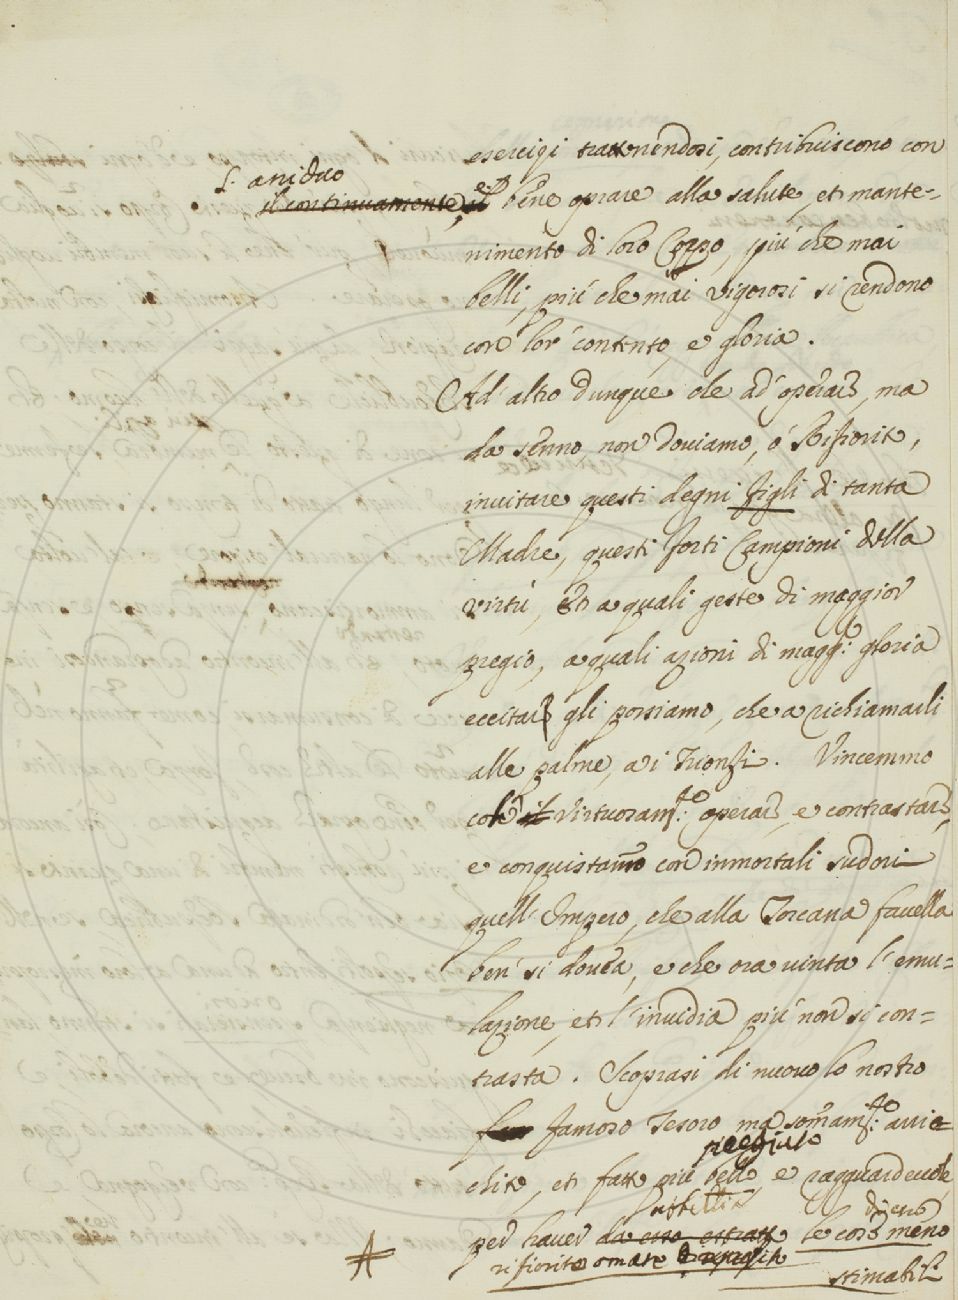 esercizi trattenendosi, contribuiscono con
l'assiduo
il continuamente, e'l bene oprare alla salute, et mante=
nimento di loro Corpo, più che mai
belli, più che mai vigorosi si rendono
con lor contento, e gloria.
Ad altro dunque che ad operare, ma
da senno non doviamo, ò Rifiorite,
invitare questi degni figli di tanta
Madre, questi forti Campioni della
virtù, et a quali geste di maggior
pregio, a quali azioni di magg.r gloria
eccitare gli possiamo, che a richiamarli
alle palme, a i Trionfi. Vincemmo
col virtuosam.to operare, e contrastare,
e conquistamo con immortali sudori
quell'Impero, che alla Toscana favella
ben si doveva, e che ora vinta l'emu=
lazione, et l'invidia più non si con=
trasta. Scoprasi di nuovo lo nostro
famoso Tesoro ma sommam.to arric=
chito, et fatto più bello, e ragguardevole,
per haver da esso le cose meno
rifiorite ornate
stimabili